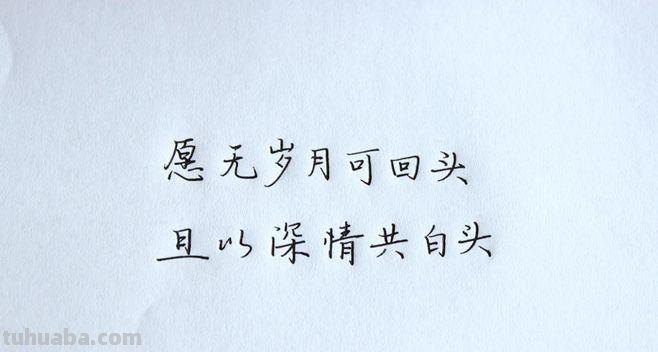 愿无岁月可回头
且以深情共白头
tuhuaba.com